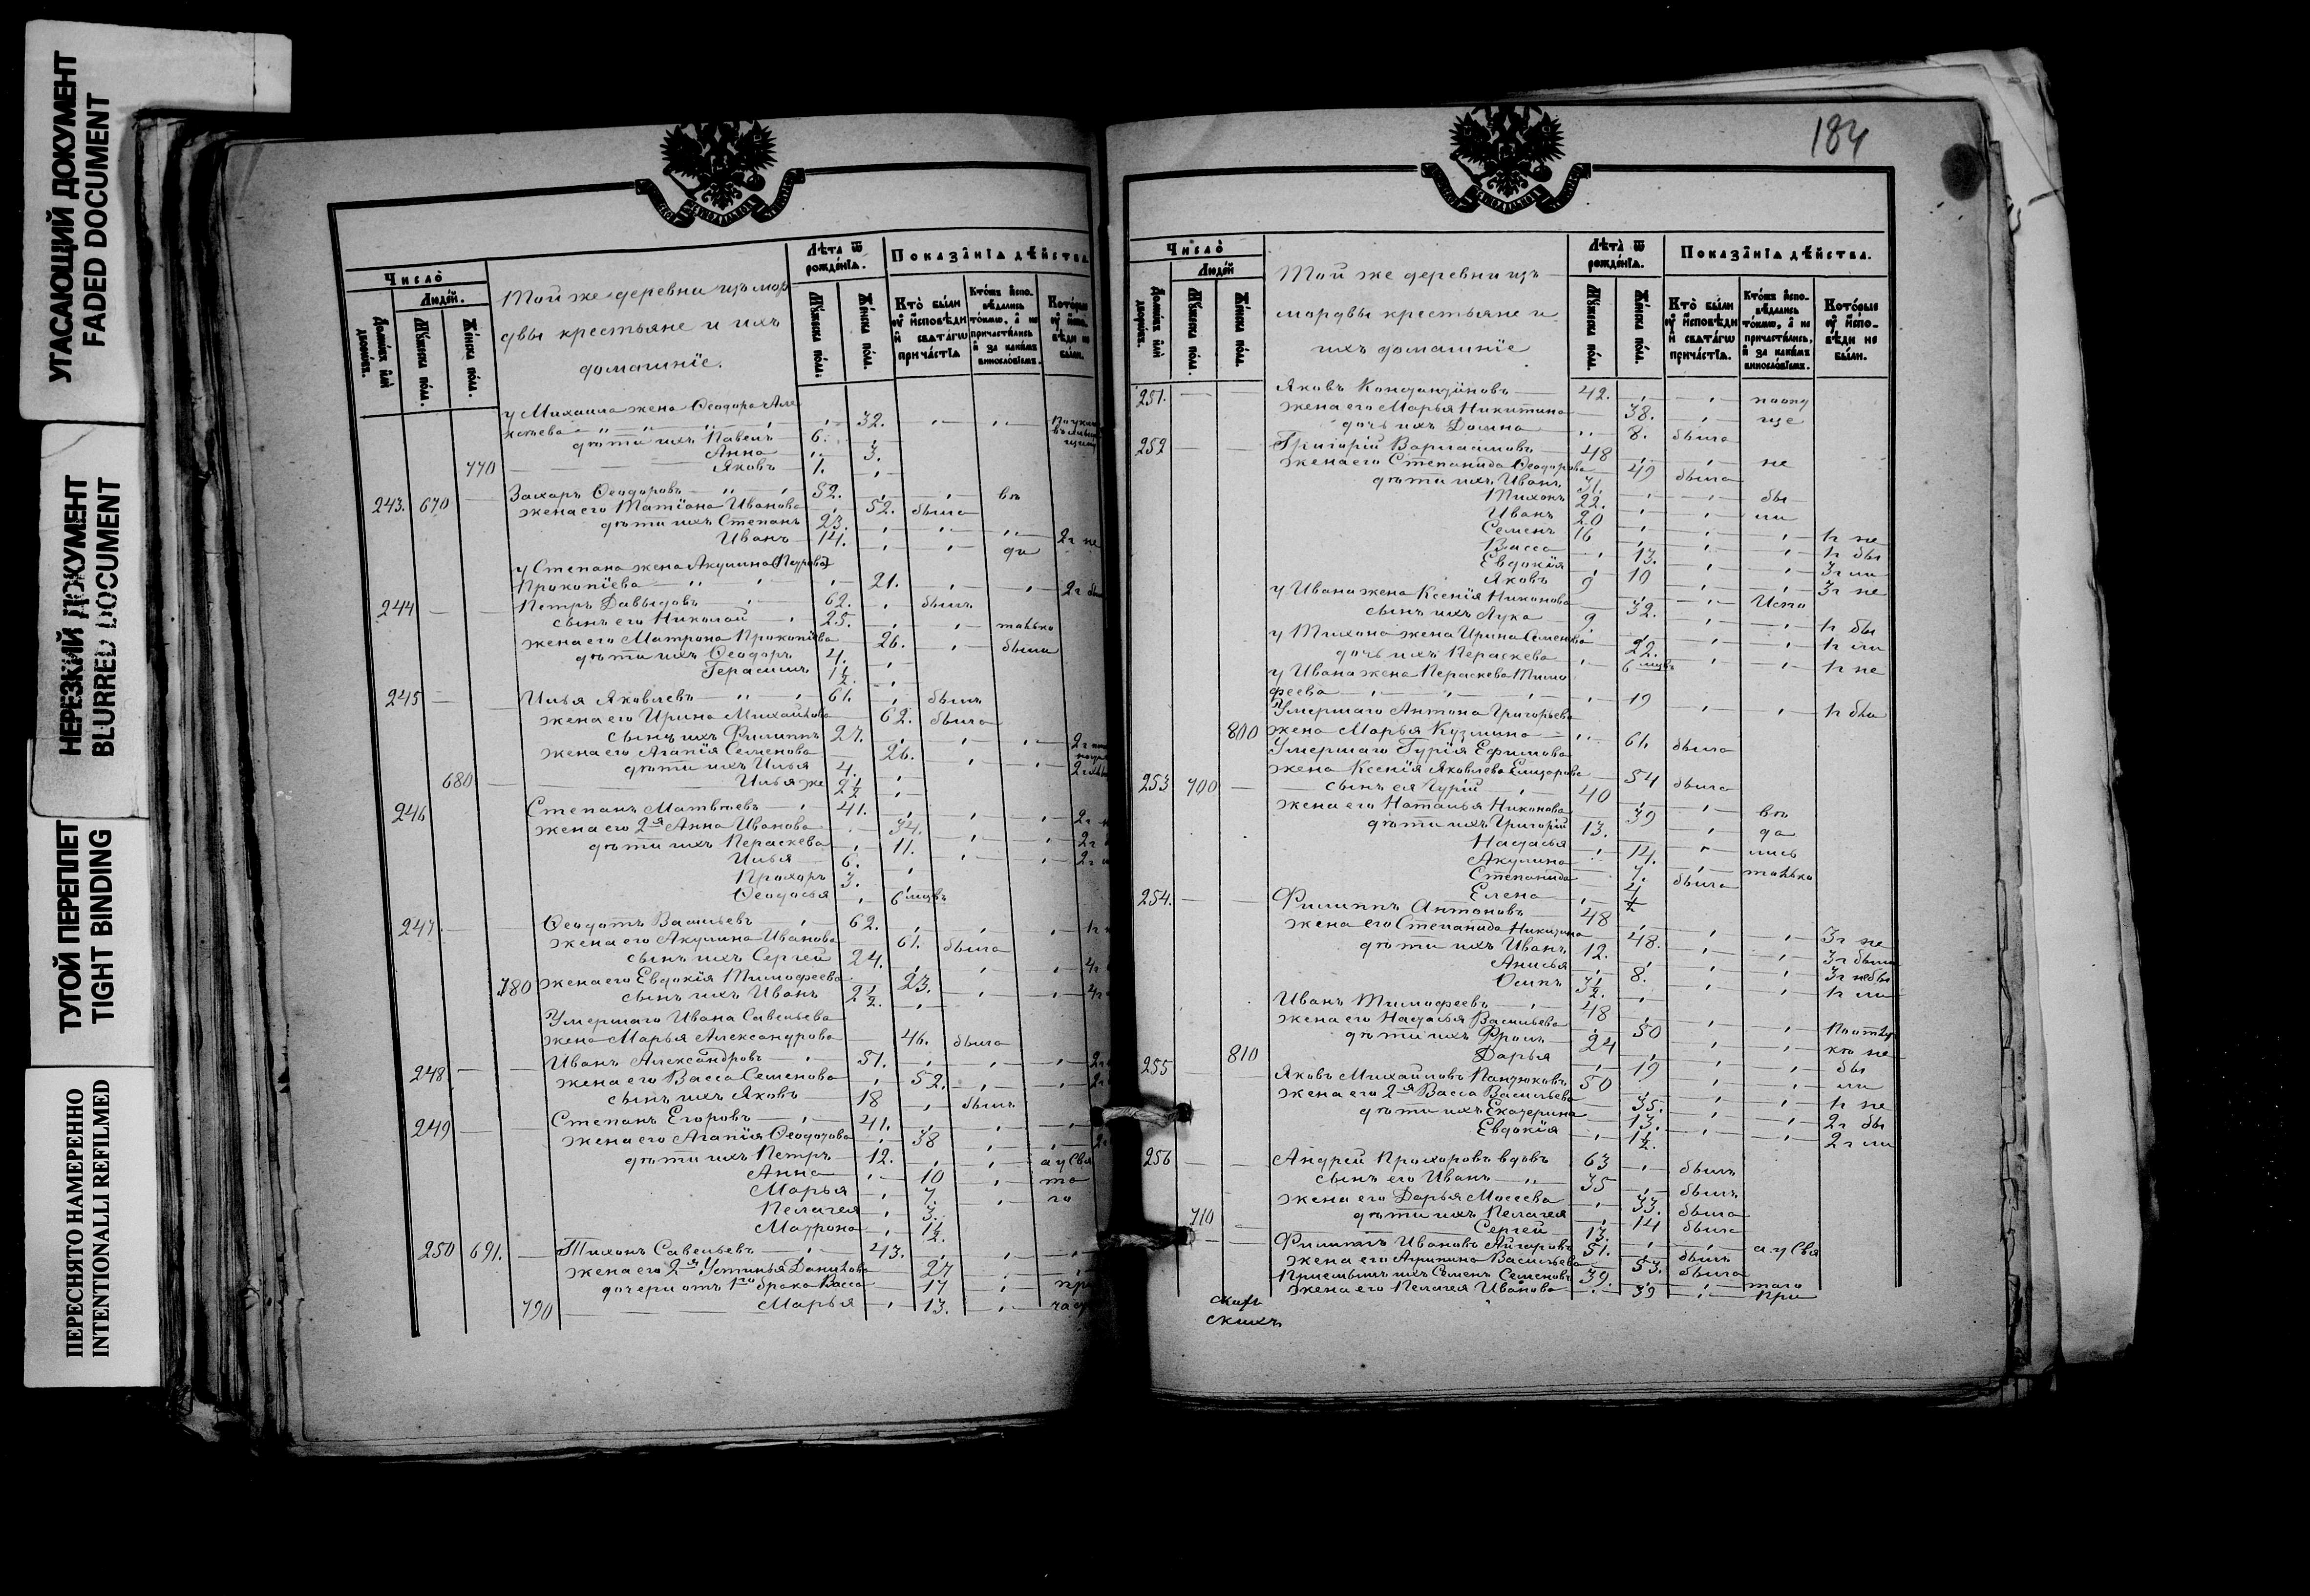 УГАСАЮЩИЙ ДОКУМЕНТ
FADED DOCUMENT
НЕРЕЗКИЙ ДОКУМЕНТ
BLURRED DOCUMENT
ТУГОЙ ПЕРЕПЛЕТ
TIGHT BINDING
ПЕРЕСНЯТО НАМЕРЕННО
INTENTIONALLI REFILMED
Число̀
Людей.
Домовъ или дворовъ.
Мужеска пола.
Женска пола.
Той же деревни изъ мор
двы крестьяне и ихъ
домашніе.
Лѣта ѿ рожденїѧ.
Мужеска пола.
Женска пола.
Показанїѧ дѣйства.
Кто были оу исповѣди и свѧтагѡ причастїѧ
Ктожъ исповѣдались токмѡ, а не причастились и за какимъ винословїемъ.
Которые оу исповѣди не были.
у Михаила жена Ѳеодора Але
ксѣева 32.
дѣти ихъ Павелъ 6.
Анна 3.
770 Яковъ 1.
243. 670 Захаръ Ѳеодоровъ 52. въ
жена его Татіана Иванова 52. была
дѣти ихъ Степанъ 23.
Иванъ 14. 2 г не
у Степана жена Акулина
Прокопіева 21. 2 г
244 Петръ Давыдовъ 62. былъ
сынъ его Николай 25. только
жена его Матрона Прокопіева 26. были
дѣти ихъ Ѳеодоръ 4.
Герасимъ 1½
245 Илья Яковлевъ 61. былъ
жена его Ирина Михайлова 62. была
сынъ ихъ Филиппъ 27. 2 г
жена его Агапія Семенова 26.
дѣти ихъ Илья 4.
680 Илья же 2½
246 Степанъ Матвѣевъ 41. 2 г
жена его 2я Анна Иванова 34. 2 г
дѣти ихъ Параскева 11. 2 г
Илья 6.
Прохоръ 3.
Ѳеодосья 6 мцвъ
247 Ѳеодотъ Васильевъ 62.
жена его Акулина Иванова 61. была
сынъ ихъ Сергей 24. 4 г
780 жена его Евдокія Тимофеева 23. 4 г
сынъ ихъ Иванъ 2½
Умершаго Ивана Савельева
жена Марья Александрова 46. была
248 Иванъ Александровъ 51. 2 г
жена его Васса Семенова 52. 2 г
сынъ ихъ Яковъ 18 былъ
249 Степанъ Егоровъ 41.
жена его Агапія Ѳеодотова 38
дѣти ихъ Петръ 12. а у Свя
Анна 10 та
Марья 7. го
Пелагея 3.
Матрона 1½
250 691. Тихонъ Савельевъ 43.
жена его 2я Устинья Данилова 27
дочери отъ 1го брака Васса 17 при
790 Марья 13. част
184
Число̀
Людей
Домовъ или дворовъ.
Мужеска пола.
Женска пола.
Той же деревни изъ
мордвы крестьяне и
ихъ домашніе
Лѣта ѿ рожденїѧ.
Мужеска пола.
Женска пола.
Показанїѧ дѣйства.
Кто были оу исповѣди и свѧтагѡ причастїѧ.
Ктожъ исповѣдались токмѡ, а не причастились, и за какимъ винословїемъ.
Которые оу исповѣди не были.
251. Яковъ Констандиновъ 42.
жена его Марья Никитина 38. ще
дочь ихъ Домна 8. была
252 Григорій Варламовъ 48 не
жена его Степанида Ѳеодорова 49 была
дѣти ихъ Иванъ 31. бы
Тихонъ 22. ли
Иванъ 20
Семенъ 16 1 г не
Васса 13. 1 г бы
Евдокія 10 3 г ли
Яковъ 9 3 г не
у Ивана жена Ксенія Никонова 32. Испо
сынъ ихъ Лука 9 1 г бы
у Тихона жена Ирина Семенова 22. 1 г ли
дочь ихъ Параскева 6 мцвъ 1 г не
у Ивана жена Параскева Тимо
феева 19 1 г бы
Умершаго Антона Григорьева
800 жена Марья Кузмина 61. была
Умершаго Гурія Ефимова
жена Ксенія Яковлева Елизарова 54 была
253 700 сынъ ея Гурій 40
жена его Наталья Никонова 39 въ
дѣти ихъ Григорій 13. да
Настасья 14. лись
Акулина 7. только
Степанида 4 была
Елена ½
254. Филиппъ Антоновъ 48
жена его Степанида Никитина 48. 3 г не
дѣти ихъ Иванъ 12. 3 г были
Анисья 8. 3 г не бы
Осипъ 3½ 1 г ли
Иванъ Тимофеевъ 48
жена его Настасья Васильева 50
дѣти ихъ Фролъ 24 не
810 Дарья 19 бы
255 Яковъ Михайловъ Пантюковъ 50 ли
жена его 2я Васса Васильева 35. 1 г не
дѣти ихъ Екатерина 13. 2 г бы
Евдокія 1½ 2 г ли
256 Андрей Прохоровъ вдовъ 63 былъ
сынъ его Иванъ 35 былъ
жена его Дарья Мосеева 33. была
дѣти ихъ Пелагея 14 была
710 Сергей 13.
Филиппъ Ивановъ Айгаровъ 51. былъ а у Свя
жена его Агрипина Васильева 53. была
Приемышъ ихъ Семенъ Семеновъ 39. таго
жена его Пелагея Иванова 39 при
скихъ